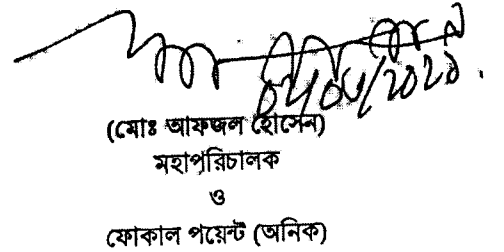 (মোঃ আফজল হোসেন)
মহাপরিচালক
ও
ফোকাল পয়েন্ট (অনিক)